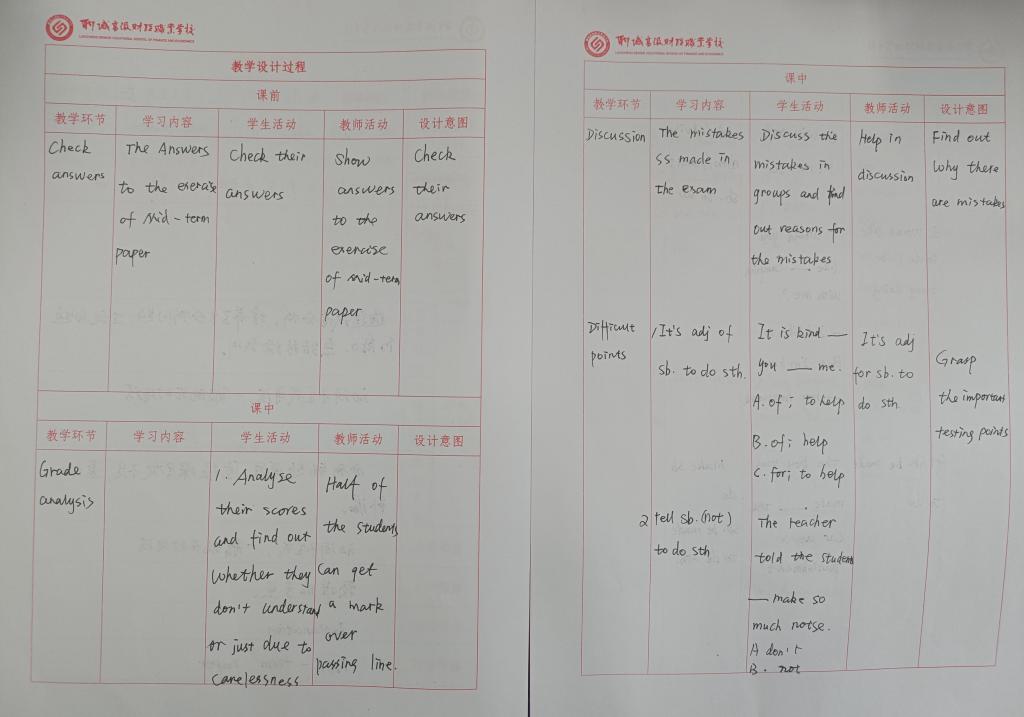 聊城高级财经职业学校
LIAOCHENG SENIOR VOCATIONAL SCHOOL OF FINANCE AND ECONOMICS
教学设计过程
课前
教学环节 学习内容 学生活动 教师活动 设计意图
Check
answers
The Answers
to the exercise
of Mid-term
paper
Check their
answers
Show
answers
to the
exercise
of mid-term
paper
Check
their
answers
课中
教学环节 学习内容 学生活动 教师活动 设计意图
Grade
analysis
1. Analyse
their scores
and find out
whether they
don't understand
or just due to
carelessness
Half of
the students
can get
a mark
over
passing line.
聊城高级财经职业学校
LIAOCHENG SENIOR VOCATIONAL SCHOOL OF FINANCE AND ECONOMICS
课中
教学环节 学习内容 学生活动 教师活动 设计意图
Discussion
The mistakes
ss made in
the exam
Discuss the
mistakes in
groups and find
out reasons for
the mistakes
Help in
discussion
Find out
why there
are mistakes
Difficult
points
1 It's adj of
sb. to do sth.
It is kind —
you — me.
A. of; to help
B. of; help
C. for; to help
It's adj
for sb. to
do sth.
Grasp
the important
testing points
2 tell sb. (not)
to do sth
The teacher
told the students
— make so
much notse.
A don't
B. not